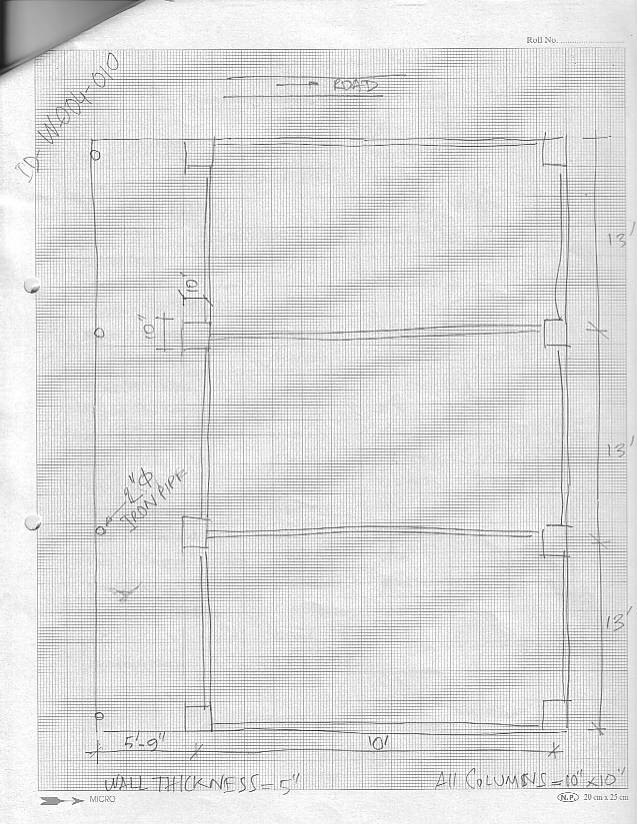 Roll No.
ROAD
ID-W-004-010
13'
10"
10"
13'
2"Φ
IRON PIPE
13'
5'-9"
10'
WALL THICKNESS=5"
All COLUMNS=10"X10"
MICRO
N.P. 20 cm x 25 cm